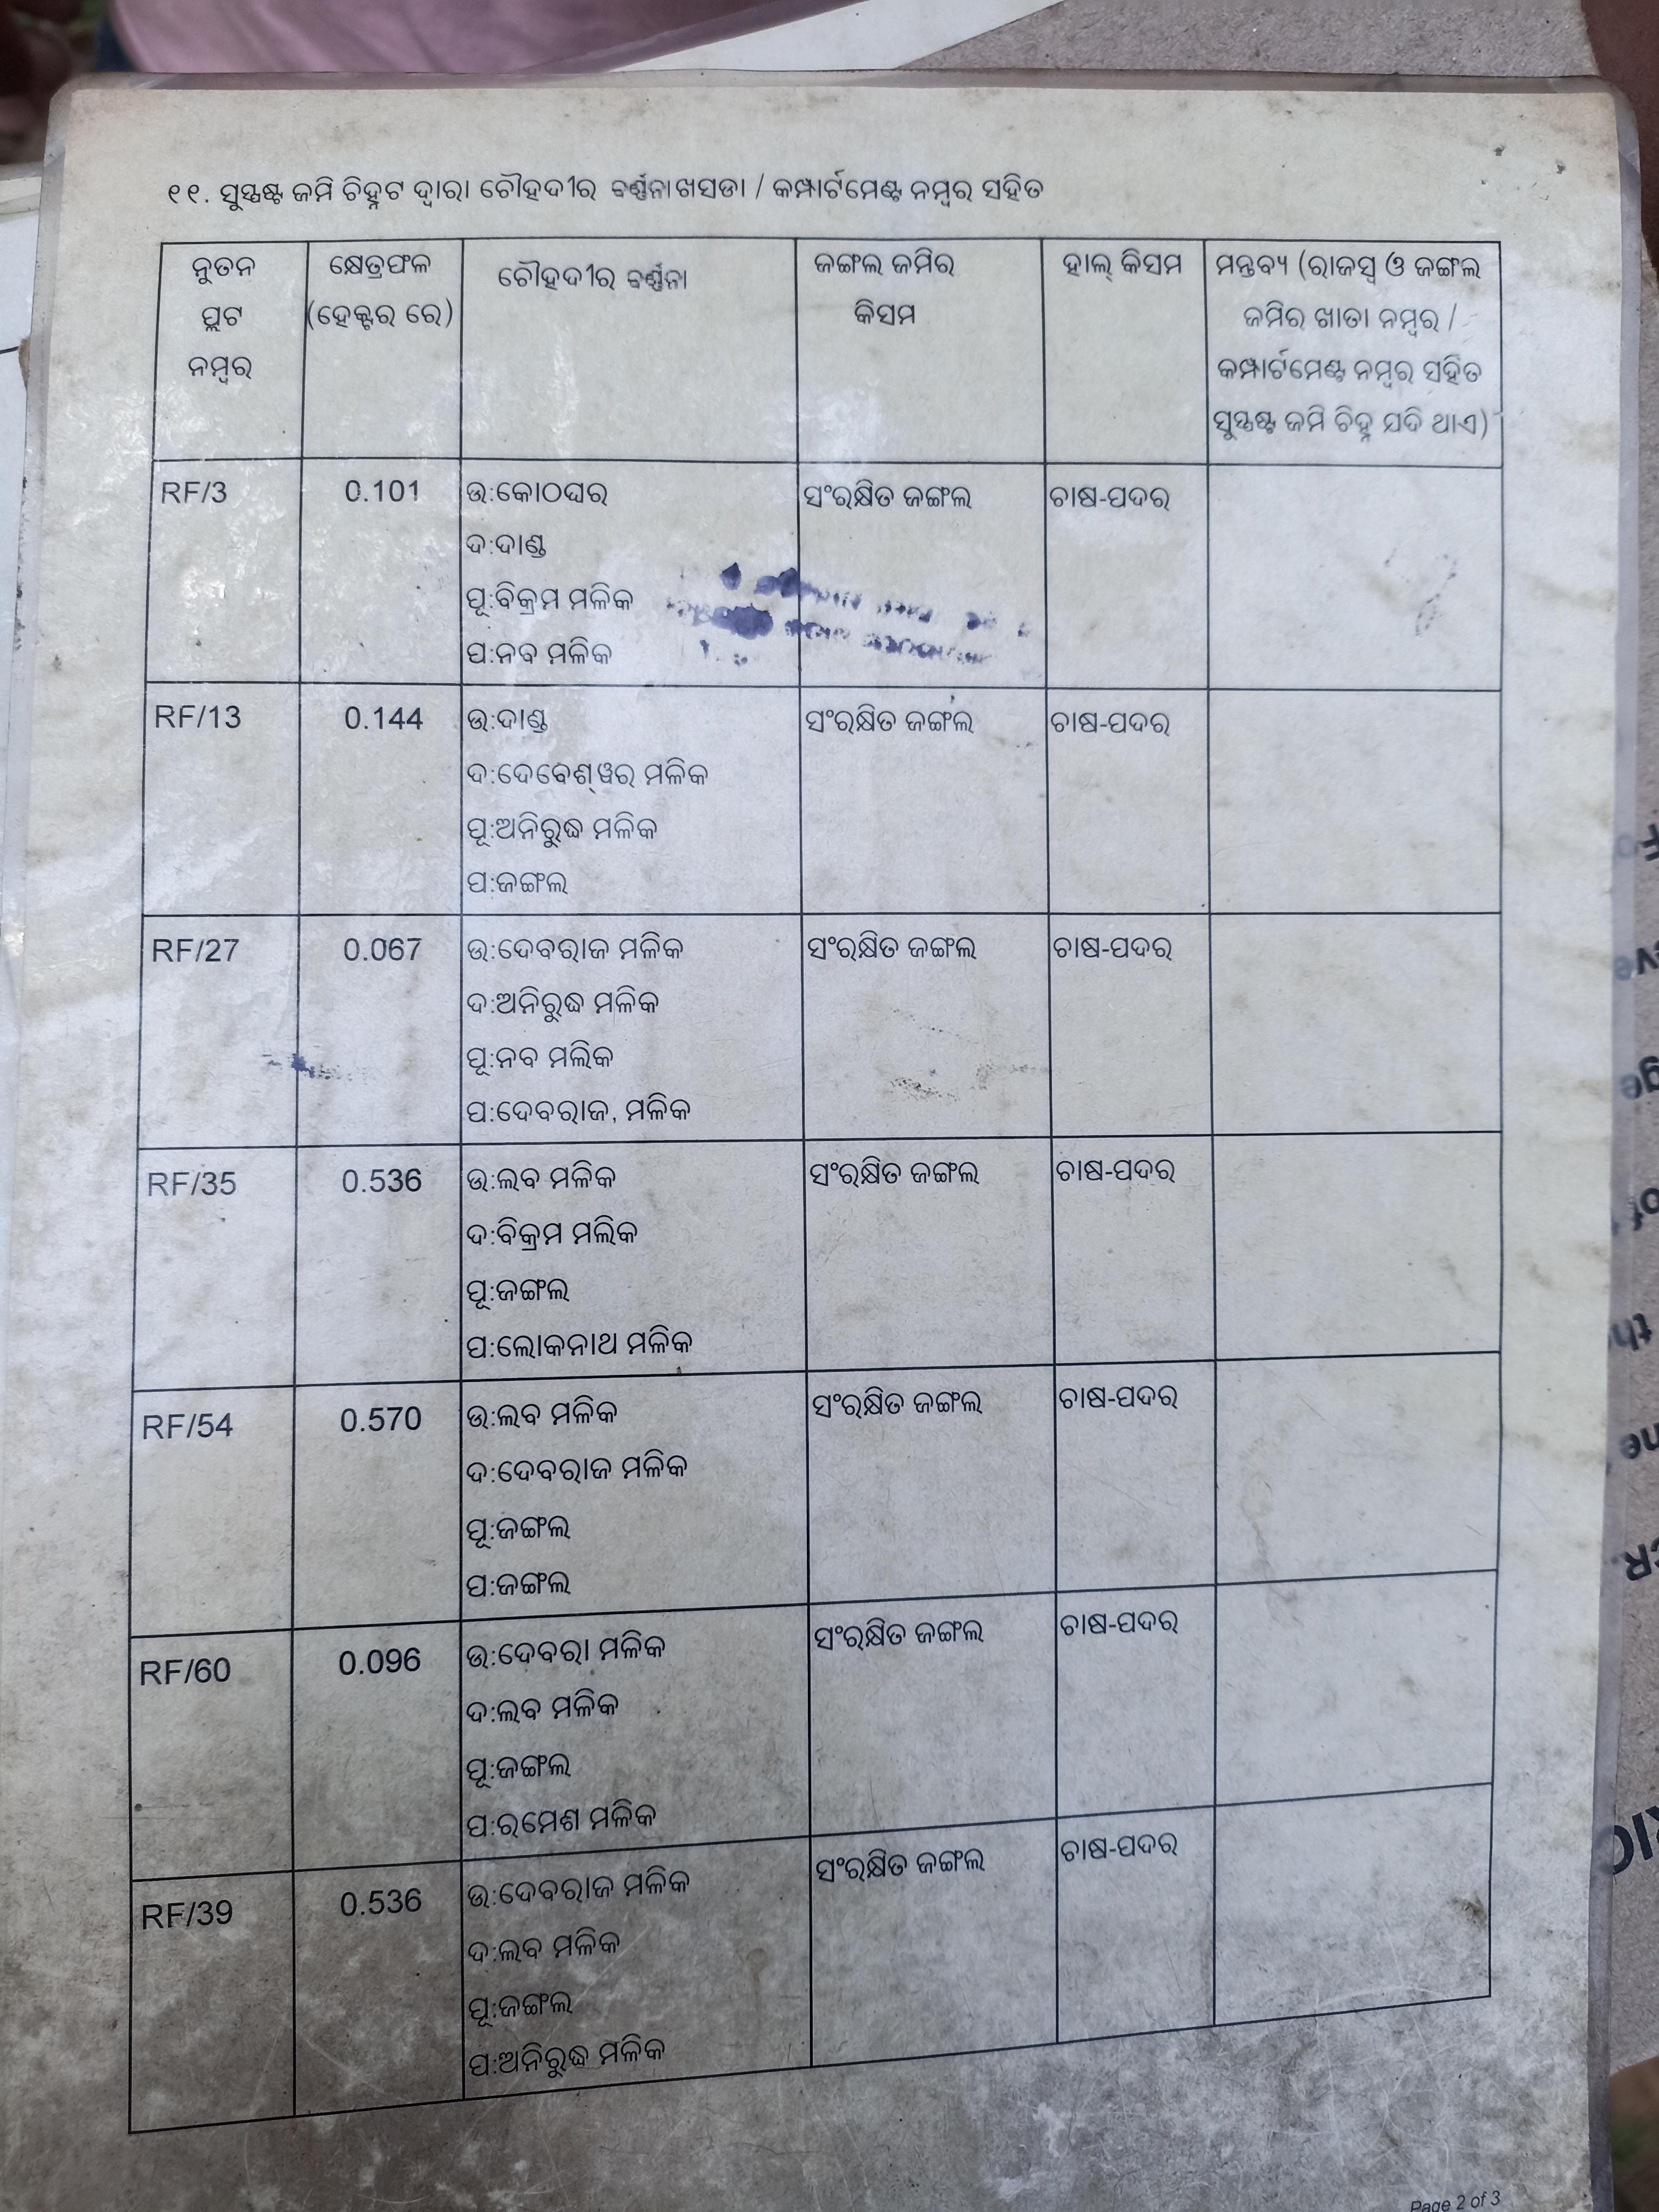 ୧୧. ସୁସ୍ପଷ୍ଟ ଜମି ଚିହ୍ନଟ ଦ୍ୱାରା ଚୌହଦୀର ବର୍ଣ୍ଣନା ଖସଡା / କମ୍ପାର୍ଟମେଣ୍ଟ ନମ୍ବର ସହିତ
ନୁତନ ପ୍ଲଟ ନମ୍ବର
କ୍ଷେତ୍ରଫଳ (ହେକ୍ଟର ରେ)
ଚୌହଦୀର ବର୍ଣ୍ଣନା
ଜଙ୍ଗଲ ଜମିର କିସମ
ହାଲ୍ କିସମ
ମନ୍ତବ୍ୟ (ରାଜସ୍ୱ ଓ ଜଙ୍ଗଲ
ଜମିର ଖାତା ନମ୍ବର /
କମ୍ପାର୍ଟମେଣ୍ଟ ନମ୍ବର ସହିତ
ସୁସ୍ପଷ୍ଟ ଜମି ଚିହ୍ନ ଯଦି ଥାଏ)
RF/3 0.101 ଉ:କୋଠଘର ସଂରକ୍ଷିତ ଜଙ୍ଗଲ ଚାଷ-ପଦର
ଦ:ଦାଣ୍ଡ
ପୂ:ବିକ୍ରମ ମଳିକ
ପ:ନବ ମଳିକ
RF/13 0.144 ଉ:ଦାଣ୍ଡ ସଂରକ୍ଷିତ ଜଙ୍ଗଲ ଚାଷ-ପଦର
ଦ:ଦେବେଶ୍ୱର ମଳିକ
ପୂ:ଅନିରୁଦ୍ଧ ମଳିକ
ପ:ଜଙ୍ଗଲ
RF/27 0.067 ଉ:ଦେବରାଜ ମଳିକ ସଂରକ୍ଷିତ ଜଙ୍ଗଲ ଚାଷ-ପଦର
ଦ:ଅନିରୁଦ୍ଧ ମଳିକ
ପୂ:ନବ ମଲିକ
ପ:ଦେବରାଜ, ମଳିକ
RF/35 0.536 ଉ:ଲବ ମଳିକ ସଂରକ୍ଷିତ ଜଙ୍ଗଲ ଚାଷ-ପଦର
ଦ:ବିକ୍ରମ ମଲିକ
ପୂ:ଜଙ୍ଗଲ
ପ:ଲୋକନାଥ ମଳିକ
RF/54 0.570 ଉ:ଲବ ମଳିକ ସଂରକ୍ଷିତ ଜଙ୍ଗଲ ଚାଷ-ପଦର
ଦ:ଦେବରାଜ ମଳିକ
ପୂ:ଜଙ୍ଗଲ
ପ:ଜଙ୍ଗଲ
RF/60 0.096 ଉ:ଦେବରା ମଳିକ ସଂରକ୍ଷିତ ଜଙ୍ଗଲ ଚାଷ-ପଦର
ଦ:ଲବ ମଳିକ
ପୂ:ଜଙ୍ଗଲ
ପ:ରମେଶ ମଳିକ
RF/39 0.536 ଉ:ଦେବରାଜ ମଳିକ ସଂରକ୍ଷିତ ଜଙ୍ଗଲ ଚାଷ-ପଦର
ଦ:ଲବ ମଳିକ
ପୂ:ଜଙ୍ଗଲ
ପ:ଅନିରୁଦ୍ଧ ମଳିକ
Page 2 of 3